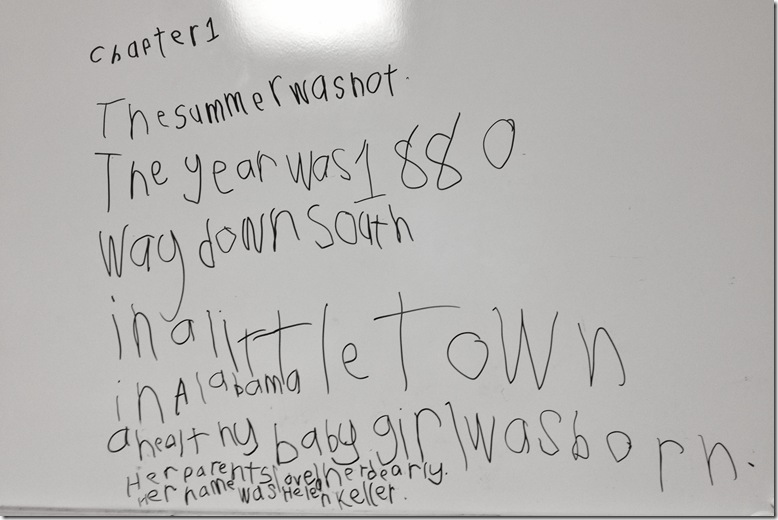 Chapter 1
The summer was hot.
The year was 1880
way down South
in a little Town
in Alabama
a healthy baby girl was born.
Her parents loved her dearly.
Her name was Helen Keller.